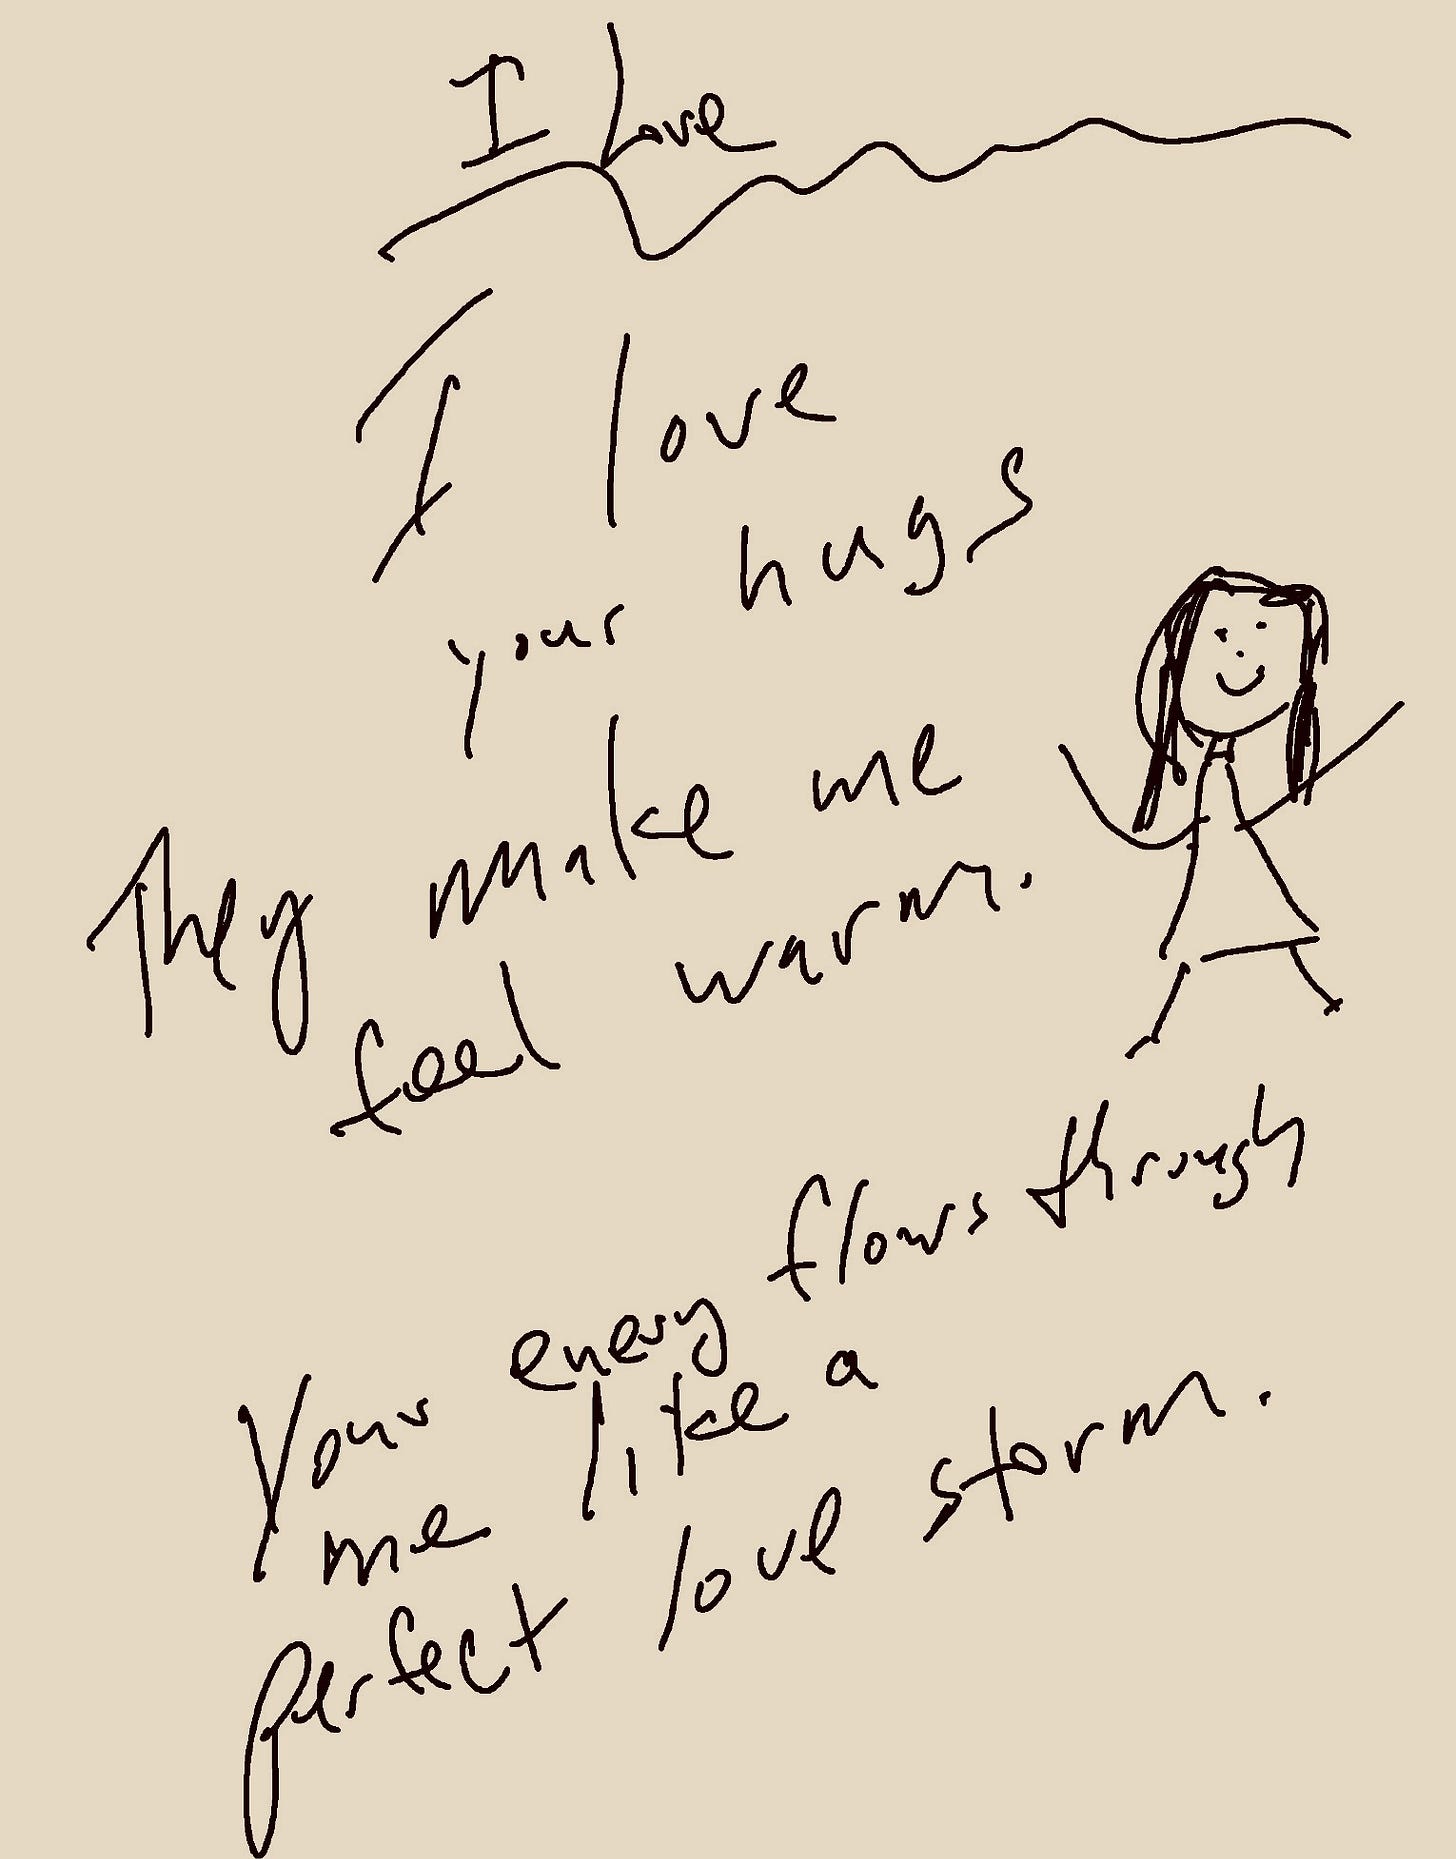 I Love
I love
your hugs
They make me
feel warm.
Your energy flows through
me like a
perfect love storm.